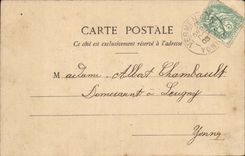 CARTE POSTALE
Ce côté est exclusivement réservé à l'adresse
Madame Albert Chambault
à Lougny
Yonne